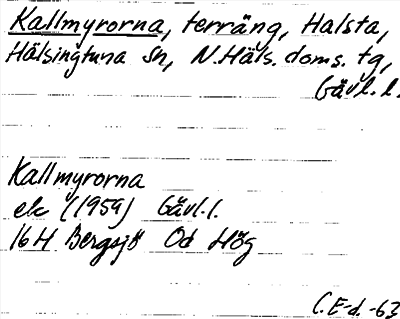 Kallmyrorna, terräng, Halsta,
Hälsingtuna sn, N.Häls. doms. tg,
Gävl.l.
Kallmyrorna
ek (1959) Gävl.l.
16H Bergsjö Od Hög
C.E-d.-63